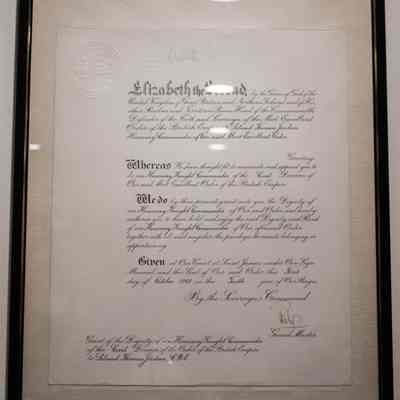 Elizabeth the Second, by the Grace of God of the
United Kingdom of Great Britain and Northern Ireland and of Her
other Realms and Territories Queen, Head of the Commonwealth,
Defender of the Faith and Sovereign of the Most Excellent
Order of the British Empire to
Honorary Commander of Our said Most Excellent Order
Greeting
Whereas We have thought fit to nominate and appoint you to
be an Honorary Knight Commander of the Civil Division of
Our said Most Excellent Order of the British Empire
We do by these presents grant unto you the Dignity of
an Honorary Knight Commander of Our said Order and hereby
authorise you to have hold and enjoy the said Dignity and Rank
of an Honorary Knight Commander of Our aforesaid Order
together with all and singular the privileges thereunto belonging or
appertaining.
Given at Our Court at Saint James's under Our Sign
Manual and the Seal of Our said Order this First
day of October in the Tenth year of Our Reign
By the Sovereign's Command
Grand Master
Grant of the Dignity of an Honorary Knight Commander
of the Civil Division of the Order of the British Empire
to